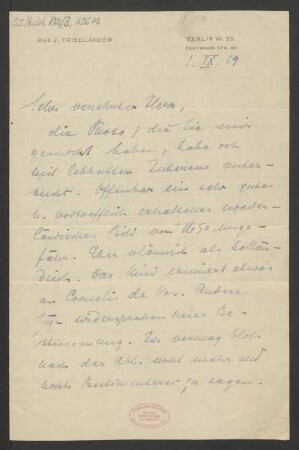 MAX J. FRIEDLÄNDER
BERLIN W. 35
1. IX. 19
Sehr verehrter Herr,
die Photo, die Sie mir
gesandt haben, habe ich
mit lebhaftem Interesse unter-
sucht. Offenbar ein sehr gutes
u. vortrefflich erhaltenes nieder-
ländisches Bild von 1650 unge-
fähr. Eher vlämisch als hollän-
disch. Das Kind erinnert etwas
an Cornelis de Vos. Andere
Züge widersprechen dieser Be-
stimmung. Ich vermag bloß
nach der Abb. nicht mehr und
nichts Bestimmteres zu sagen.